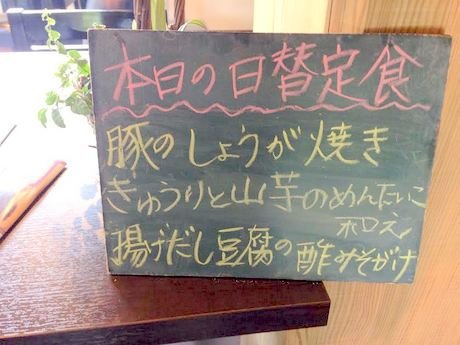 本日の日替定食
豚のしょうが焼き
きゅうりと山芋のめんたいこ
和え
揚げだし豆腐の酢みそがけ